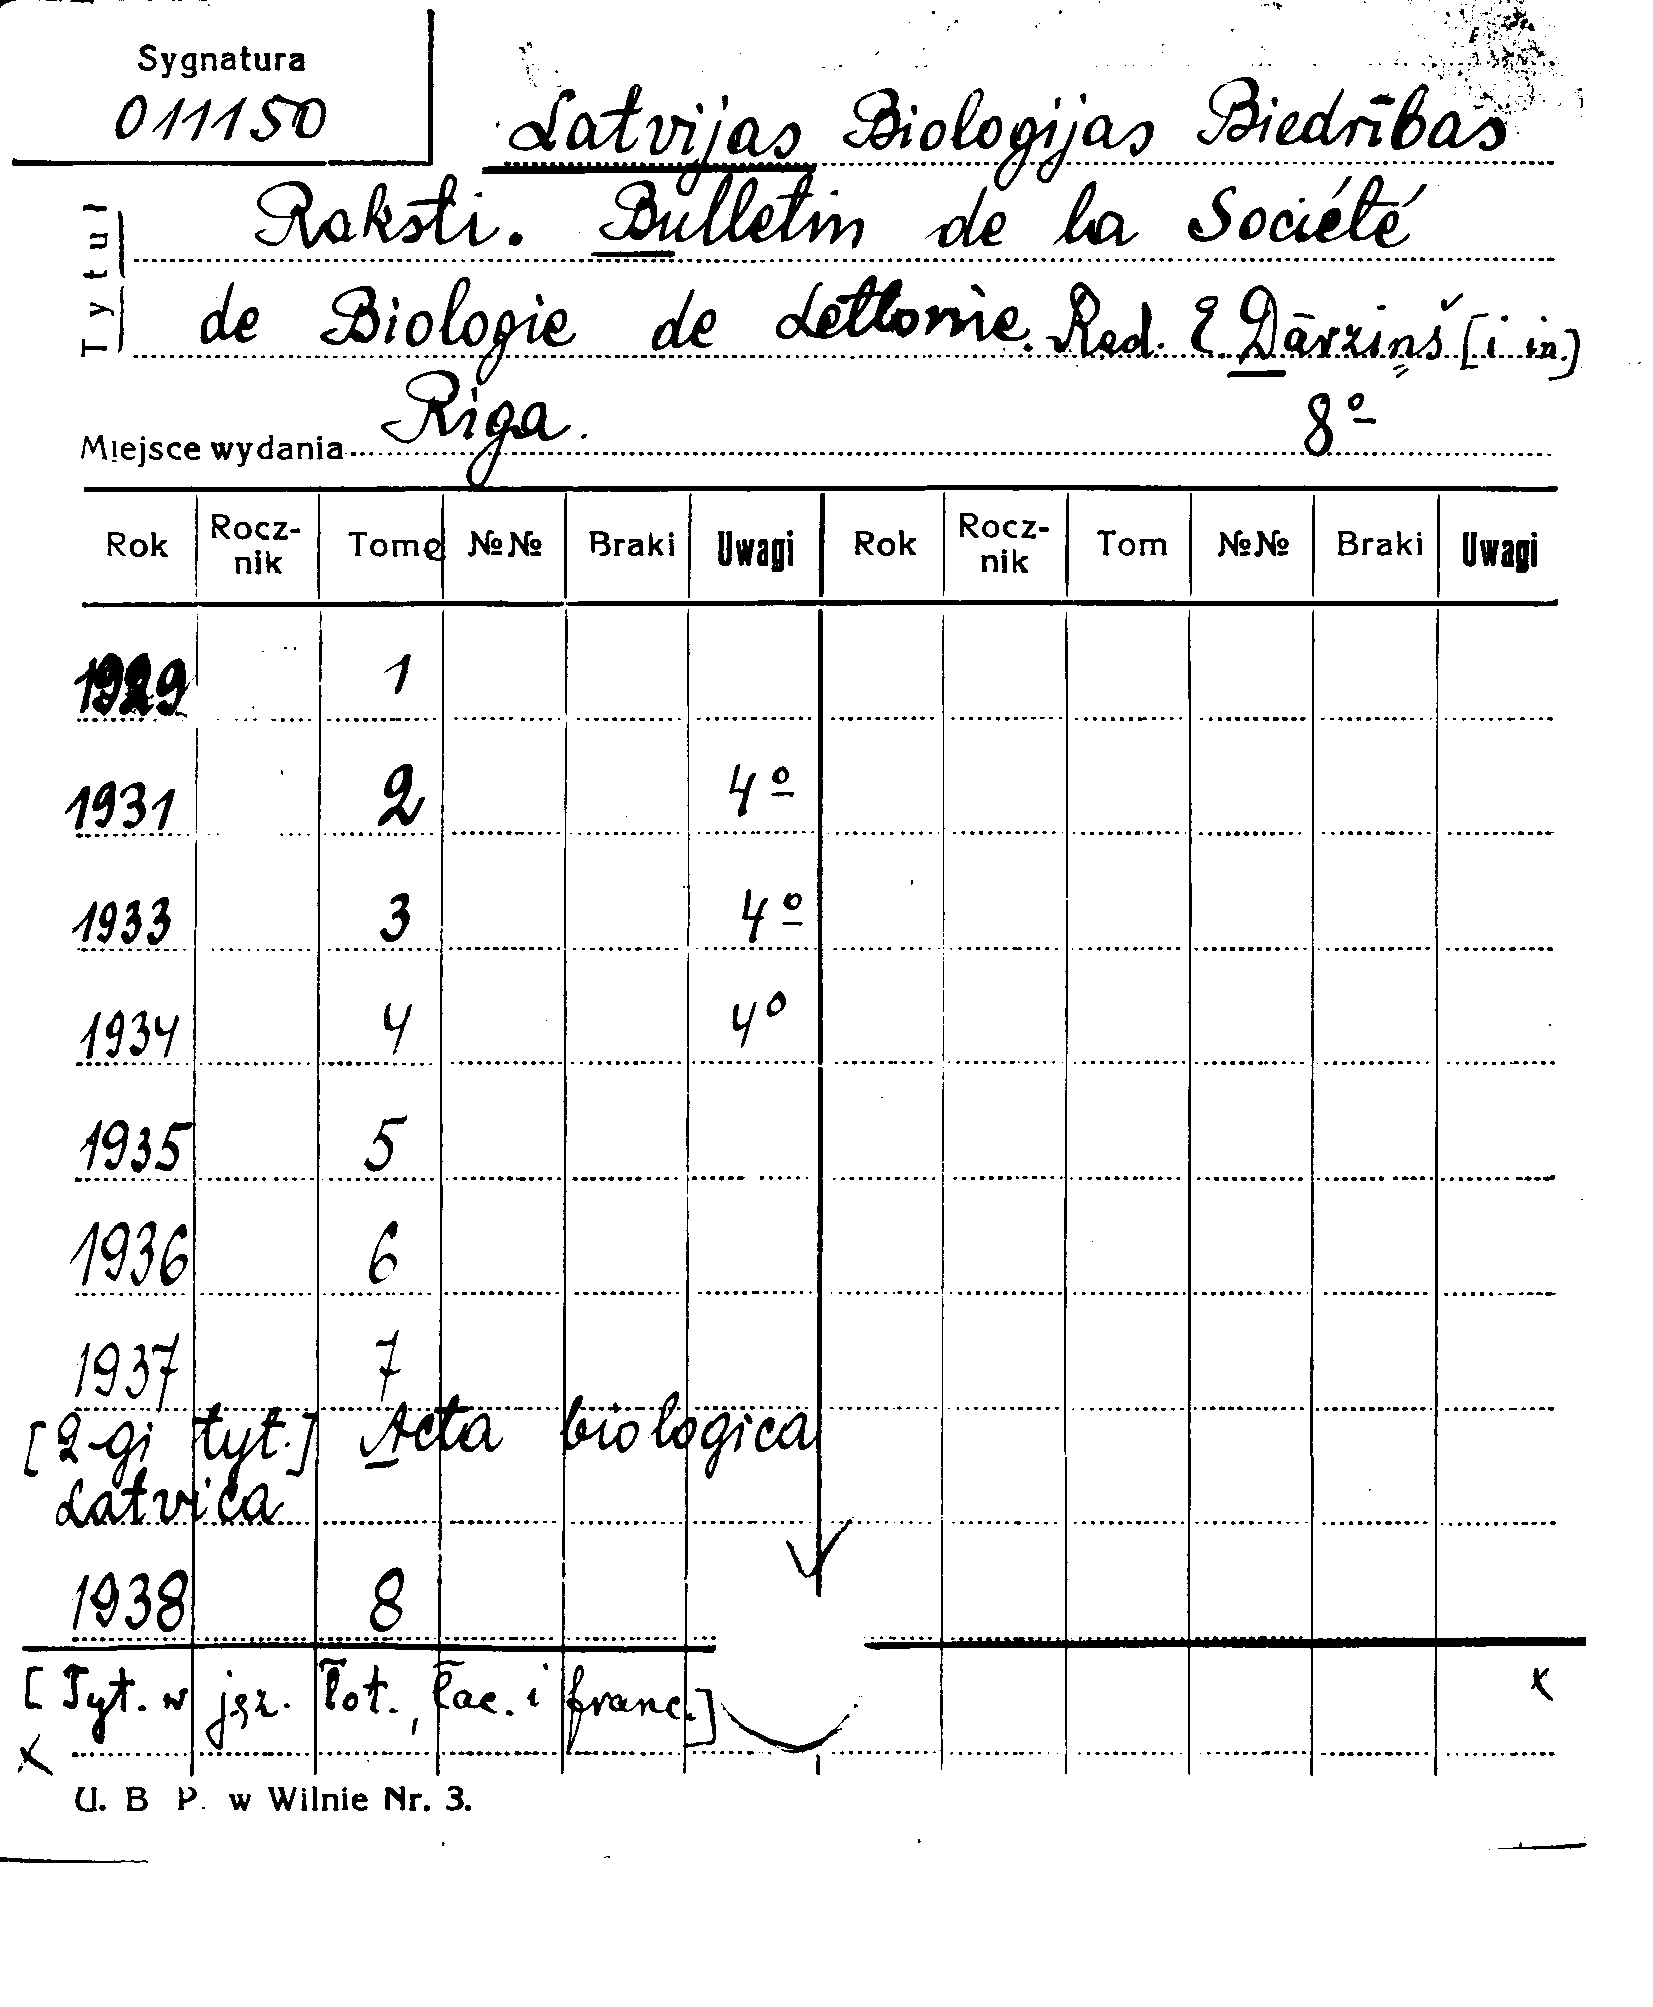 Sygnatura
011150
Latvijas Biologijas Biedrības
Tytuł
Raksti. Bulletin de la Société
de Biologie de Lettonie. Red. E. Dārziņš [i in.]
Miejsce wydania Riga. 8º
Rok Rocz-nik Tome №№ Braki Uwagi Rok Rocz-nik Tom №№ Braki Uwagi
1929 1
1931 2 4º
1933 3 4º
1934 4 4º
1935 5
1936 6
1937 7
[2-gi tyt.] Acta biologica
Latvica
1938 8
[Tyt. w jęz. łot., łac. i franc.] x
x
U. B P. w Wilnie Nr. 3.